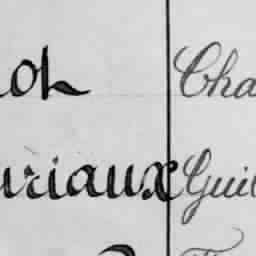 oh Cha
uriaux Guil